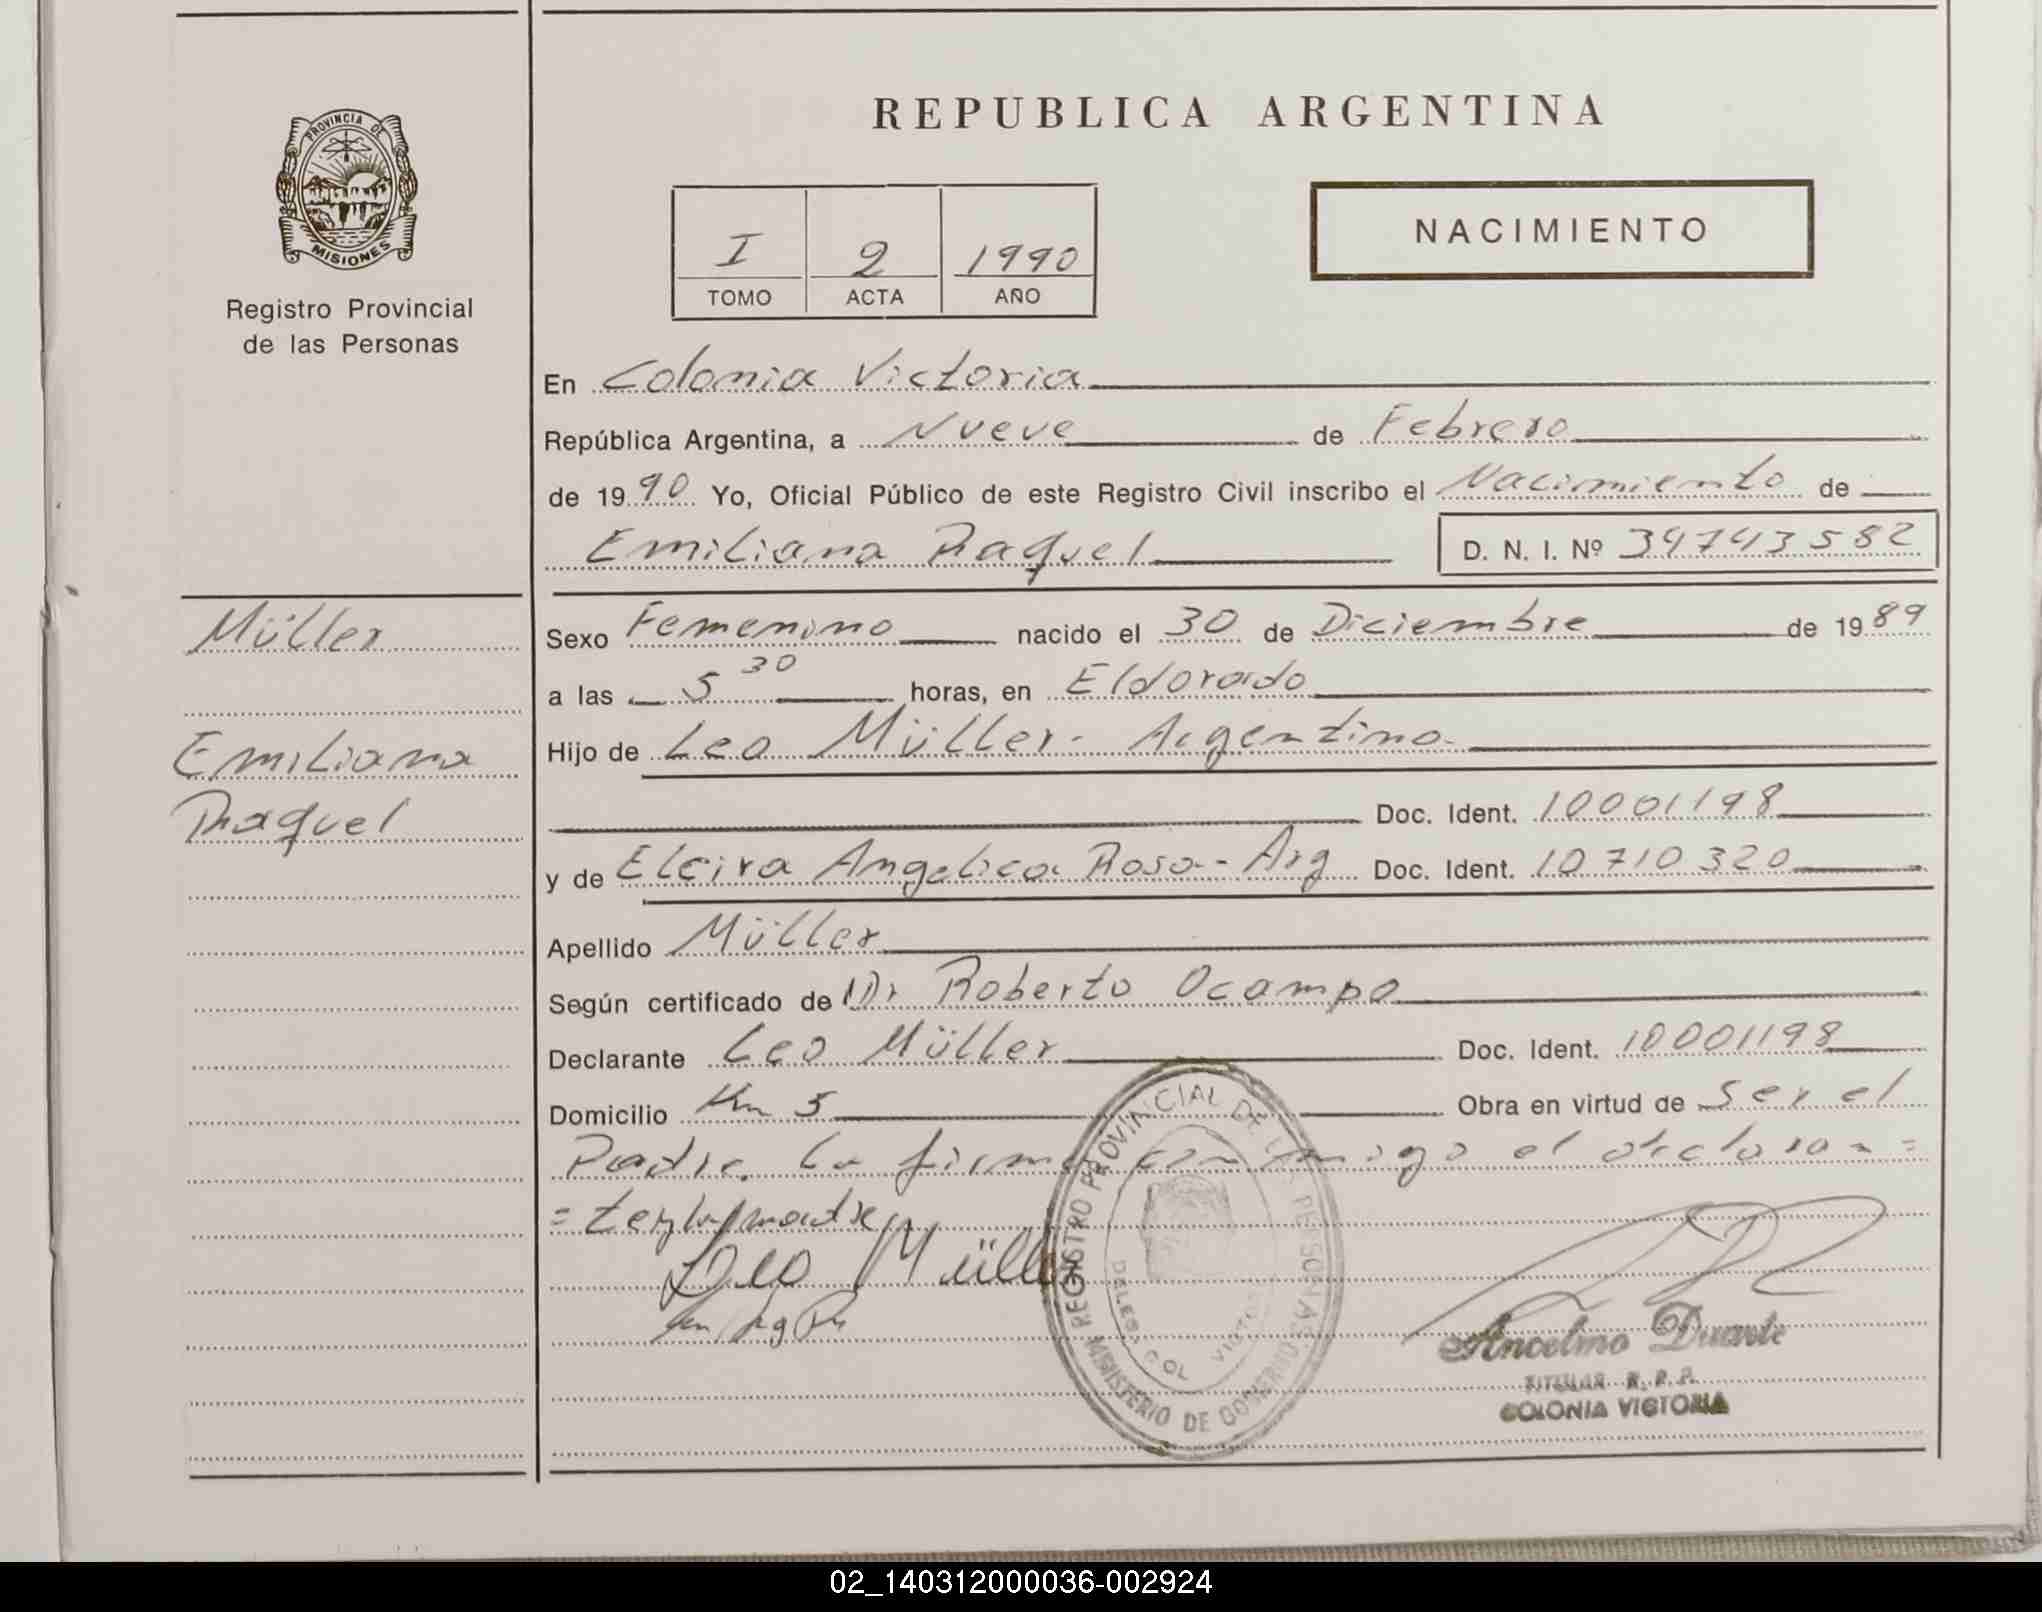 PROVINCIA DE
MISIONES
Registro Provincial
de las Personas
REPUBLICA ARGENTINA
I 2 1990
TOMO ACTA AÑO
NACIMIENTO
En Colonia Victoria
República Argentina, a Nueve de Febrero
de 1990 Yo, Oficial Público de este Registro Civil inscribo el Nacimiento de
Emiliana Raquel D. N. I. Nº 34743582
Müller
Emiliana
Raquel
Sexo Femenino nacido el 30 de Diciembre de 1989
a las 5 30 horas, en Eldorado
Hijo de Leo Müller - Argentino -
Doc. Ident. 10001198
y de Elcira Angelica Rosa - Arg Doc. Ident. 10710320
Apellido Müller
Según certificado de Dr Roberto Ocampo
Declarante Leo Müller Doc. Ident. 10001198
Domicilio Km 5 Obra en virtud de Ser el
Padre. La firma conmigo el declaran=
=te y la madre
Leo Müll
REGISTRO PROVINCIAL DE LAS PERSONAS
MINISTERIO DE GOBIERNO
DELEG. COL VICTORIA
Ancelmo Duarte
TITULAR R. P. P.
COLONIA VICTORIA
02_140312000036-002924